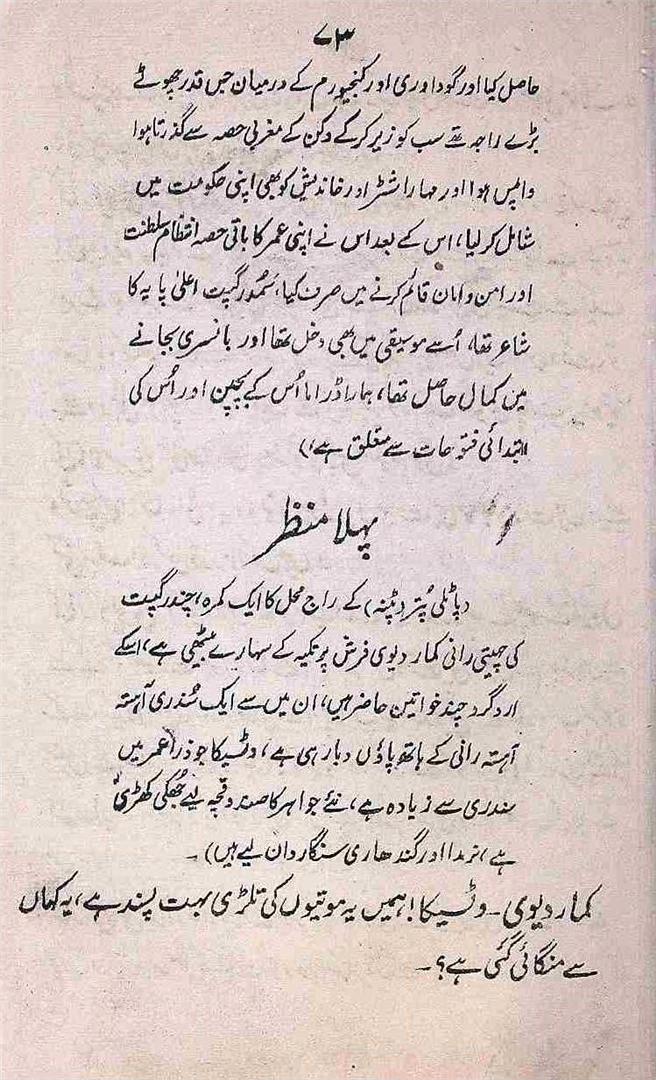 ۷۳
حاصل کیا اور گوداوری اور کنجیورم کے درمیان جس قدر چھوٹے
بڑے راجہ تھے سب کو زیر کرکے دکن کے مغربی حصہ سے گذرتا ہوا
واپس ہوا اور مہاراشٹر اور خاندیش کو بھی اپنی حکومت میں
شامل کر لیا، اس کے بعد اس نے اپنی عمر کا باقی حصہ انتظام سلطنت
اور امن و امان قائم کرنے میں صرف کیا، سمُدر گپت اعلیٰ پایہ کا
شاعر تھا، اُسے موسیقی میں بھی دخل تھا اور بانسری بجانے
میں کمال حاصل تھا، ہمارا ڈراما اُس کے بچپن اور اُس کی
ابتدائی فتوحات سے متعلق ہے،)
پہلا منظر
(پاٹلی پُتر (پٹنہ) کے راج محل کا ایک کمرہ، چندر گپت
کی چہیتی رانی کمار دیوی فرش پر تکیہ کے سہارے بیٹھی ہے، اسکے
ارد گرد چند خواتین حاضر ہیں، ان میں سے ایک سُندری آہستہ
آہستہ رانی کے ہاتھ پاؤں دبا رہی ہے، وٹسیکا جو ذرا عمر میں
سندری سے زیادہ ہے، نئے جواہر کا صندوقچہ لیے جُھکی کھڑی
ہے، نرمدا اور گندھاری سنگاردان لیے ہیں)۔
کمار دیوی۔ وٹسیکا! ہمیں یہ موتیوں کی تلڑی بہت پسند ہے، یہ کہاں
سے منگائی گئی ہے؟۔